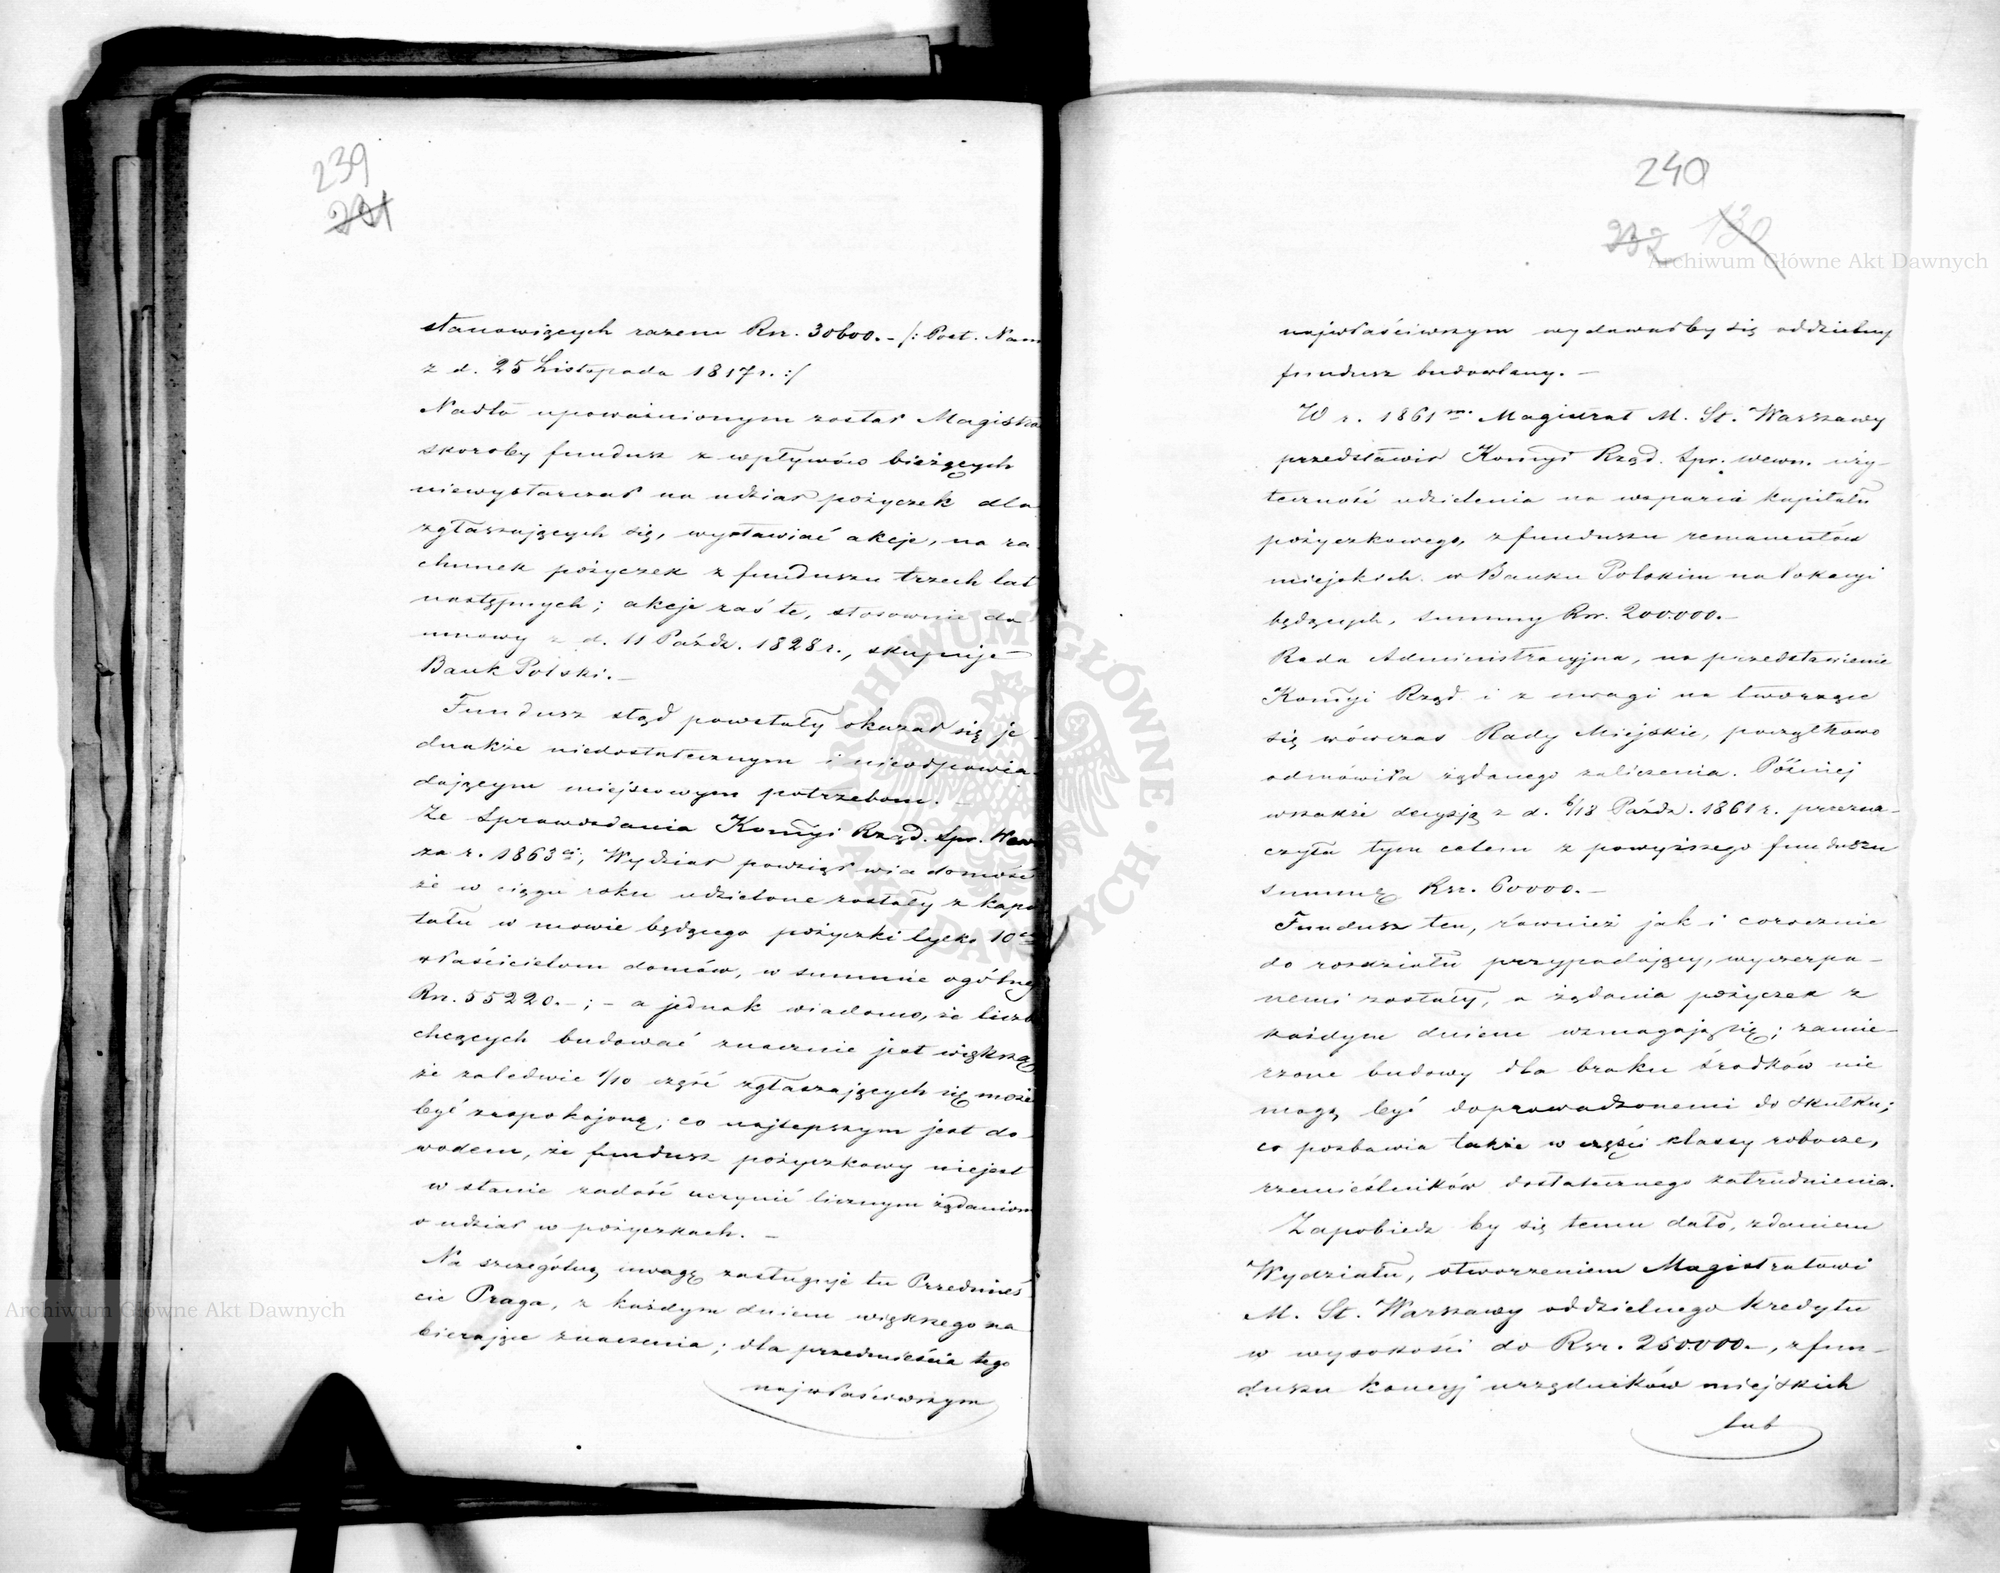 239
231
stanowiących razem Rsr. 30600. – /: Post. Nam
z d. 25 Listopada 1817 r. :/
Nadto upoważnionym został Magistra
skoroby fundusz z wpływów bieżących
niewystarczał na udział pożyczek dla
zgłaszających się, wystawiać akcje, na ra-
chunek pożyczek z funduszu trzech lat
następnych; akcje zaś te, stosownie do
umowy z d. 11 Paźdz. 1828 r., skupuje
Bank Polski. –
Fundusz stąd powstały okazał się je-
dnakże niedostatecznym i nieodpowia-
dającym miejscowym potrzebom. –
Ze Sprawozdania Kommyi Rząd. Spr. Wew
za r. 1863ci, Wydział powziął wiadomość
że w ciągu roku udzielone zostały z kapi
tału w mowie będącego pożyczki tylko 10ciu
właścicielom domów, w summie ogólnej
Rsr. 55220. – ; – a jednak wiadomo, że liczb
chcących budować znacznie jest większą
że zaledwie 1/10 część zgłaszających się może
być zaspokojoną; co najlepszym jest do-
wodem, że fundusz pożyczkowy niejest
w stanie zadość uczynić licznym żądaniom
o udział w pożyczkach. –
Na szczególną uwagę zasługuje tu Przedmieś
cie Praga, z każdym dniem większego na
bierające znaczenia; dla przedmieścia tego
najwłaściwszym
240
232 130
najwłaściwszym wydawałby się oddzielny
fundusz budowlany. –
W r. 1861m. Magistrat M. St. Warszawy
przedstawił Kommyi Rząd. Spr. wewn. uży-
teczność udzielenia na wsparcie kapitału
pożyczkowego, z funduszu remanentów
miejskich w Banku Polskim na lokacyi
będących, summy Rsr. 200.000. –
Rada Administracyjna, na przedstawienie
Kommyi Rząd. i z uwagi na tworzące
się wówczas Rady Miejskie, początkowo
odmówiła żądanego zaliczenia. Później
wszakże decyzją z d. 6/18 Paźdz. 1861 r. przezna-
czyła tym celem z powyższego funduszu
summę Rsr. 60000. –
Fundusz ten, również jak i corocznie
do rozdziału przypadający, wyczerpa-
nemi zostały, a żądania pożyczek z
każdym dniem wzmagają się; zamie-
rzone budowy dla braku środków nie
mogą być doprowadzonemi do skutku;
co pozbawia także w części klassy robocze,
rzemieślników dostatecznego zatrudnienia.
Zapobiedz by się temu dało, zdaniem
Wydziału, otworzeniem Magistratowi
M. St. Warszawy oddzielnego kredytu
w wysokości do Rsr. 250.000 –, z fun-
duszu kaucyj urzędników miejskich
lub
Archiwum Główne Akt Dawnych
Archiwum Główne Akt Dawnych
ARCHIWUM GŁÓWNE AKT DAWNYCH